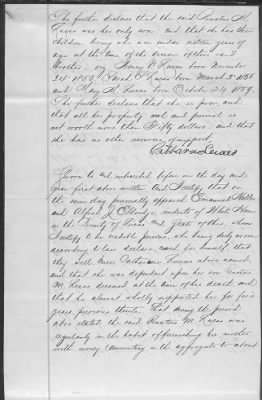 She further declares that the said Erastus M.
Lucas was her only son and that she has three
children living who are under sixteen years of
age at the time of the decease of their said
brother, viz Henry C Lucas born November
24 1850, Sarah E Lucas born March 2nd 185
and Mary H. Lucas born October 24, 1859.
She further declares that she is poor, and
that all her property real and personal is
not worth more than Fifty dollars, and that
she has no other means of support
Catharine Lucas
Sworn to and subscribed before me the day and
year first above written and I certify that on
the same day personally appeared
and Alfred J. residents of
in the County of and State of
I certify to be credible persons who being duly sworn
according to law declare each for himself that
they well know Catharine Lucas above named
and that she was dependent upon her son Erastus
M. Lucas deceased at the time of his death and
that he almost wholly supported her for five
years previous thereto. That during the period
above stated the said Erastus M. Lucas was
regularly in the habit of furnishing his mother
with money amounting in the aggregate to about